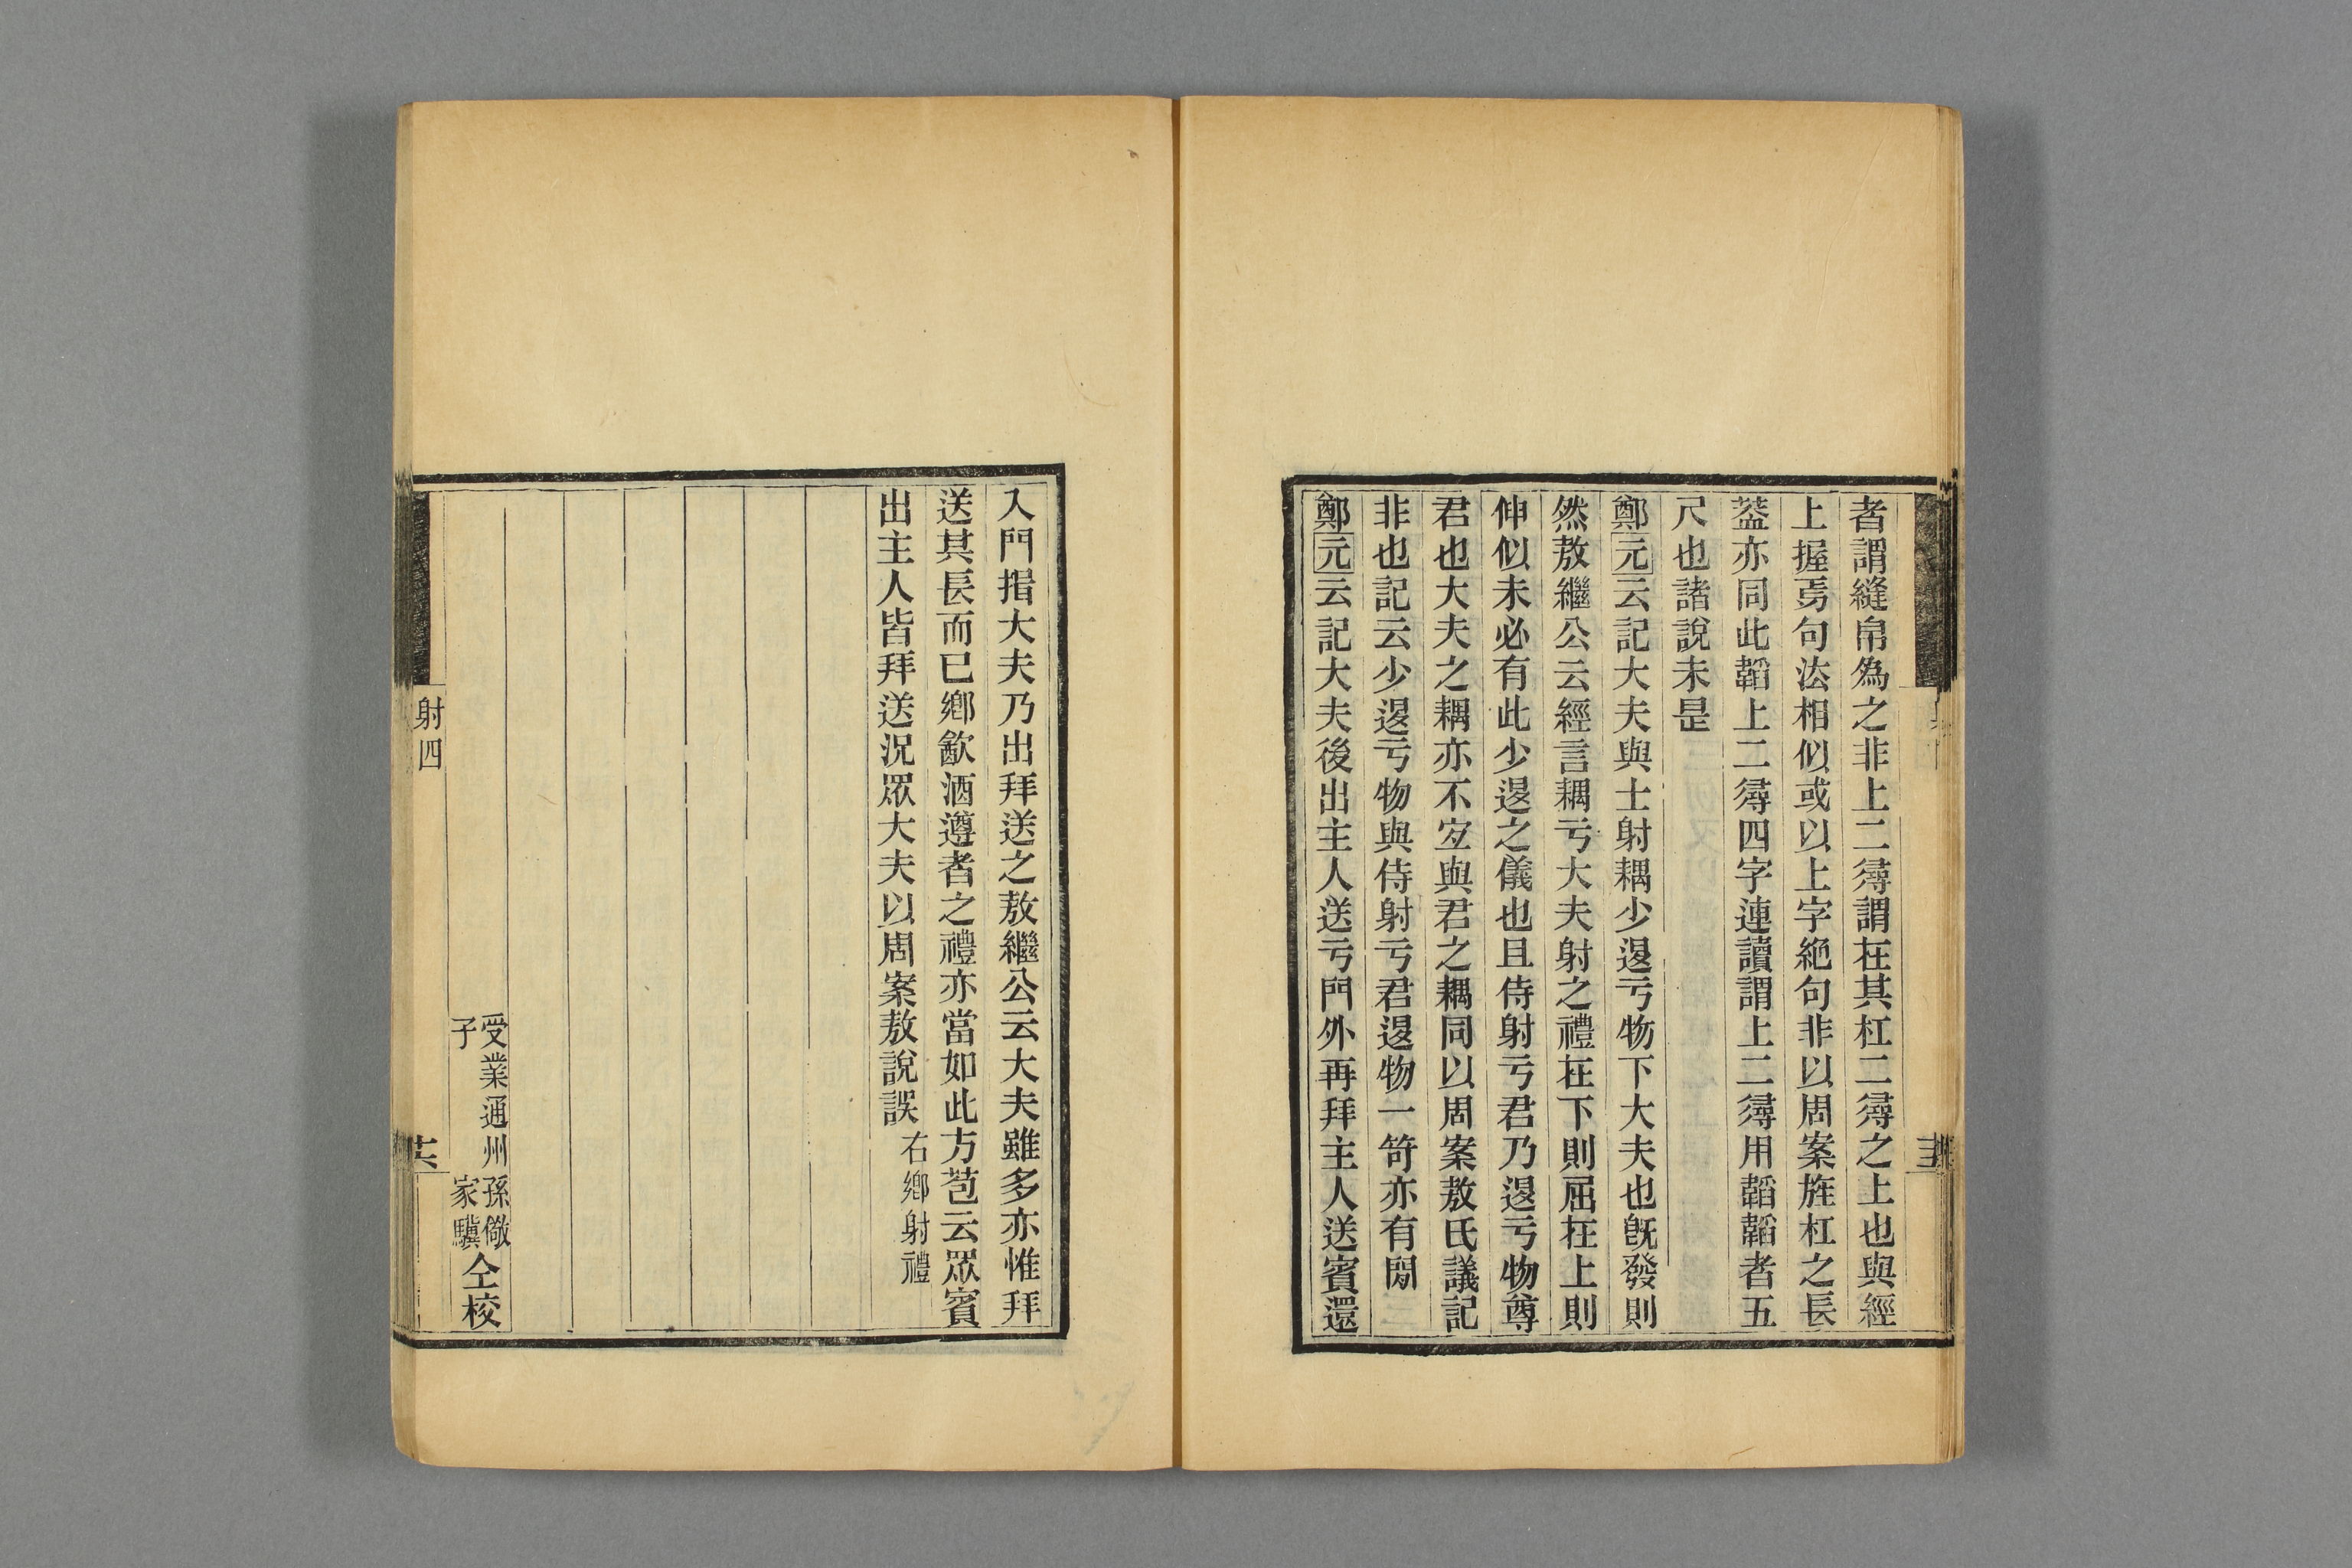 者謂縫帛爲之非上二㝷謂在其杠二㝷之上也與經
上握焉句法相似或以上字絶句非以周案旌杠之長
葢亦同此韜上二㝷四字連讀謂上二㝷用韜韜者五
尺也諸說未是
鄭元云記大夫與士射耦少𨓤亏物下大夫也旣發則
然敖繼公云經言耦亏大夫射之禮在下則屈在上則
伸似未必有此少𨓤之儀也且侍射亏君乃𨓤亏物尊
君也大夫之耦亦不宐與君之耦同以周案敖氏議記
非也記云少𨓤亏物與侍射亏君𨓤物一笴亦有閒
鄭元云記大夫後出主人送亏門外再拜主人送賓還
入門揖大夫乃出拜送之敖繼公云大夫雖多亦惟拜
送其長而已鄉飲酒遵者之禮亦當如此方苞云眾賓
出主人皆拜送況眾大夫以周案敖說誤 右鄉射禮
受業通州孫儆
子家驥
仝校
射四